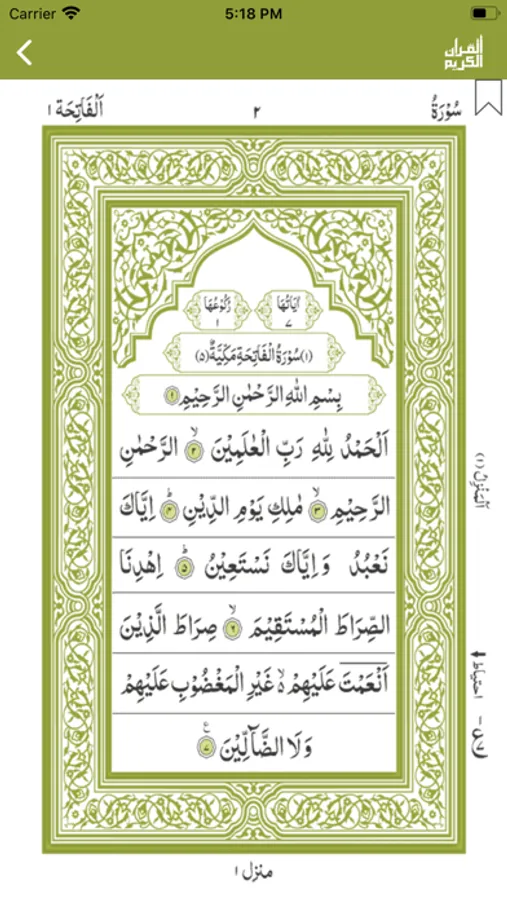 Carrier 5:18 PM
القرآن
الكريم
سُوْرَةُ ٢ اَلْفَاتِحَة ١
اٰيَاتُهَا ٧ رُكُوْعُهَا ١
(١) سُوْرَةُ الْفَاتِحَةِ مَكِّيَّةٌ (٥)
بِسْمِ اللّٰهِ الرَّحْمٰنِ الرَّحِيْمِ ١
اَلْحَمْدُ لِلّٰهِ رَبِّ الْعٰلَمِيْنَ ۙ ٢ الرَّحْمٰنِ
الرَّحِيْمِ ۙ ٣ مٰلِكِ يَوْمِ الدِّيْنِ ؕ ٤ اِيَّاكَ
نَعْبُدُ وَاِيَّاكَ نَسْتَعِيْنُ ؕ ٥ اِهْدِنَا
الصِّرَاطَ الْمُسْتَقِيْمَ ۙ ٦ صِرَاطَ الَّذِيْنَ
اَنْعَمْتَ عَلَيْهِمْ ۙ۬ ە غَيْرِ الْمَغْضُوْبِ عَلَيْهِمْ
وَلَا الضَّآلِّيْنَ ع ٧
اَلْمَنْزِلُ (١)
احتياط
منزل ١